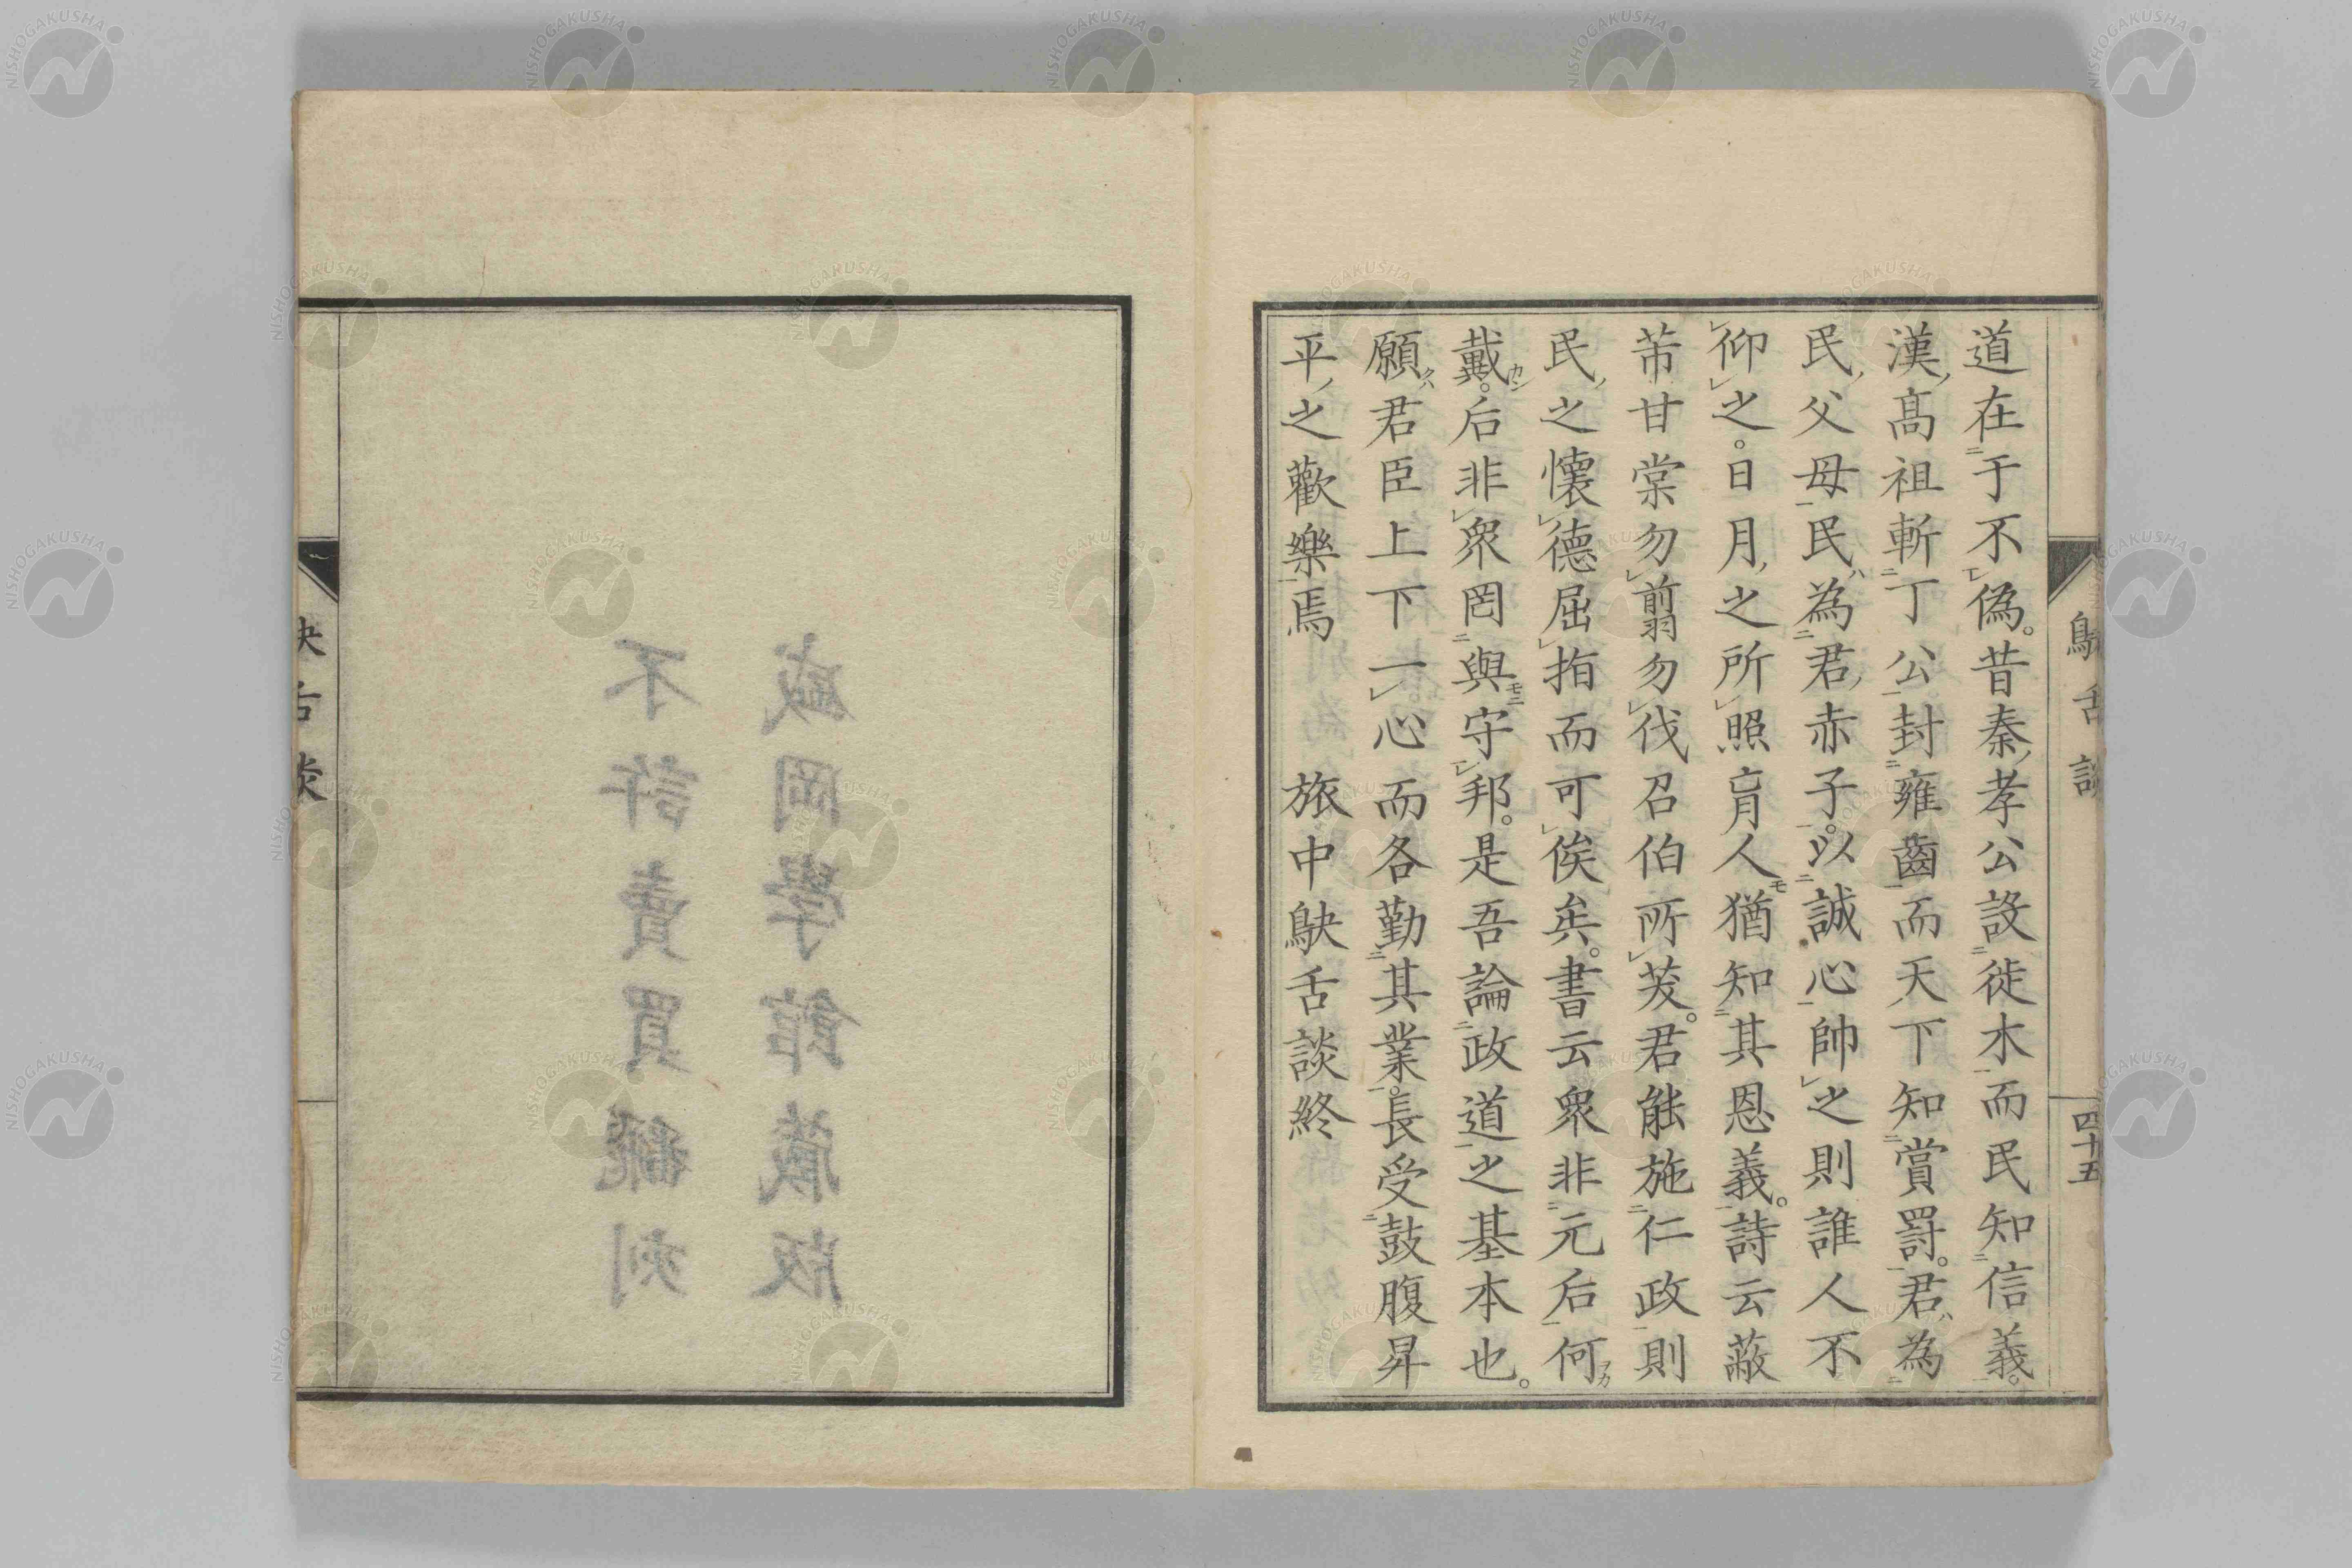 道在于不偽。昔秦孝公設徙木而民知信義。
漢髙祖斬丁公封雍齒而天下知賞罸。君為
民父母民為君赤子。以誠心帥之則誰人不
仰之。日月之所照肓人猶知其恩義。詩云蔽
芾甘棠勿翦勿伐召伯所茇。君能施仁政則
民之懷德屈指而可俟矣。書云衆非元后何
戴。后非衆罔與守邦。是吾論政道之基本也。
願君臣上下一心而各勤其業。長受鼓腹昇
平之歡樂焉 旅中鴃舌談終
鴃舌談
四十五
盛岡學館藏版
不許賣買飜刻
鴃舌談
NISHOGAKUSHA